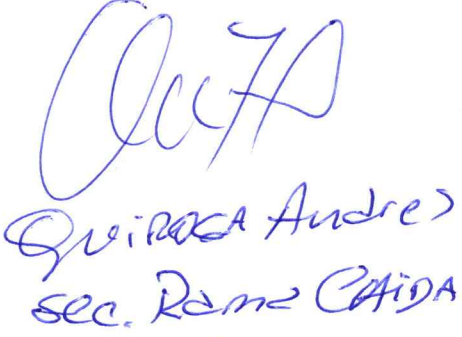 QuiROGA Andres
sec. Rama CAIDA